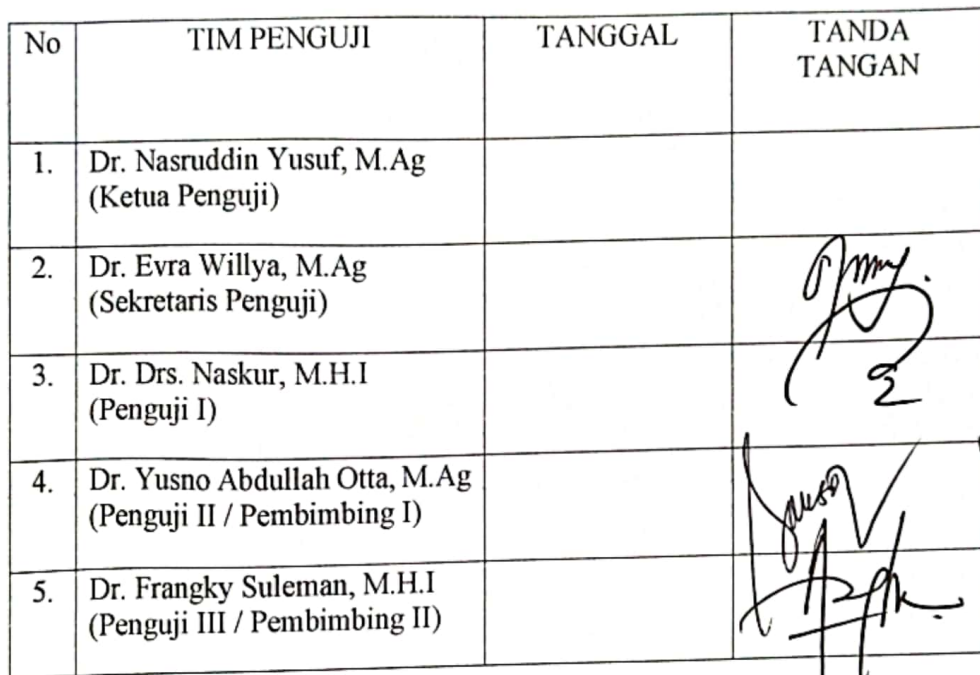 No TIM PENGUJI TANGGAL TANDA
TANGAN
1. Dr. Nasruddin Yusuf, M.Ag
(Ketua Penguji)
2. Dr. Evra Willya, M.Ag
(Sekretaris Penguji)
3. Dr. Drs. Naskur, M.H.I
(Penguji I)
4. Dr. Yusno Abdullah Otta, M.Ag
(Penguji II / Pembimbing I)
5. Dr. Frangky Suleman, M.H.I
(Penguji III / Pembimbing II)